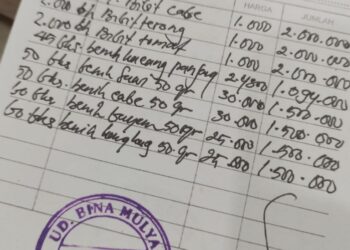 HARGA JUMLAH
Bibit cabe 1.000 2.000.000
2.000 bh Bibit terong 1.000 2.000.000
2.000 bh Bibit tomat 1.000 2.000.000
45 bks benih kacang panjang 1.094.000
50 bks benih 50 gr 30.000 1.500.000
50 bks. benih cabe 50 gr 30.000 1.500.000
60 bks benih bayam 50 gr 25.000 1.500.000
60 bks benih kangkung 50 gr 25.000 1.500.000
UD. BINA MULYA